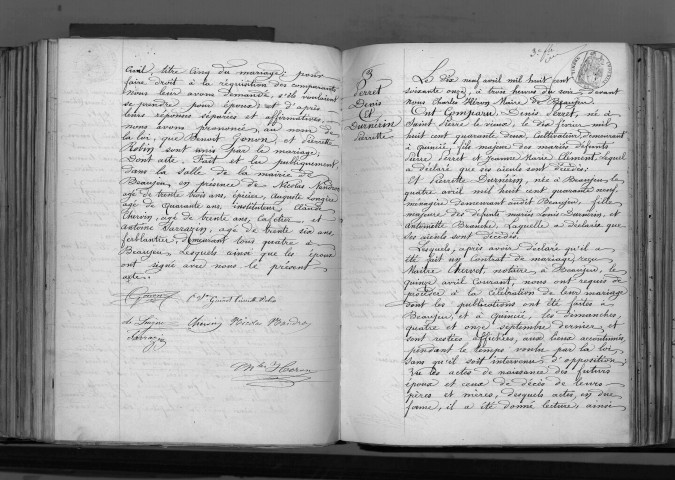 civil, titre cinq du mariage; pour
faire droit à la réquisition des comparants
nous leur avons demandé, s'ils voulaient
se prendre pour époux; et d'après
leurs réponses séparées et affirmatives,
nous avons prononcé, au nom de
la loi, que Benoit Gonon, et Pierrette
Robin sont unis par le mariage.
Dont acte. Fait et lu publiquement
dans la salle de la mairie de
Beaujeu, en présence de Nicolas
agé de trente trois ans, épicier, Auguste
agé de quarante ans, instituteur, Claude
Chervin, agé de trente ans, Cafetier et
Antoine Sarrazin, agé de trente six ans,
ferblantier, demeurant tous quatre à
Beaujeu, lesquels ainsi que les époux
ont signé avec nous le présent
acte.
Chervin Nicolas
Sarrazin
3
Perret
Denis
Et
Durnerin
Pierrette
Le dix neuf avril mil huit cent
soixante onze, à trois heures du soir, devant
nous Charles Maire de Beaujeu.
Ont Comparu: Denis Perret, né à
Saint Pierre le vieux, le dix février mil
huit cent quarante deux, Cultivateur demeurant
à Quincié, fils majeur des mariés défunts
Pierre Perret et Jeanne Marie Clément, lequel
a déclaré que ses aieuls sont décédés.
Et Pierrette Durnerin, née à Beaujeu le
quatre avril mil huit cent quarante neuf,
ménagère demeurant audit Beaujeu, fille
majeure des défunts mariés Louis Durnerin, et
Antoinette Branche, Laquelle a déclaré que
ses aieuls sont décédés.
Lesquels, après avoir déclaré qu'il a
été fait un Contrat de mariage, reçu
Maître Chervet, notaire à Beaujeu, le
quinze avril Courant, nous ont requis de
procéder à la célébration de leur mariage
dont les publications ont été faites à
Beaujeu, et à Quincié, les dimanches,
quatre et onze septembre dernier, et
sont restées affichées, aux lieux accoutumés,
pendant le temps voulu par la loi,
sans qu'il soit intervenu d'opposition;
Vu les actes de naissance des futurs
époux et ceux de décès de leurs
pères et mères, desquels actes, en due
forme, il a été donné lecture, ainsi